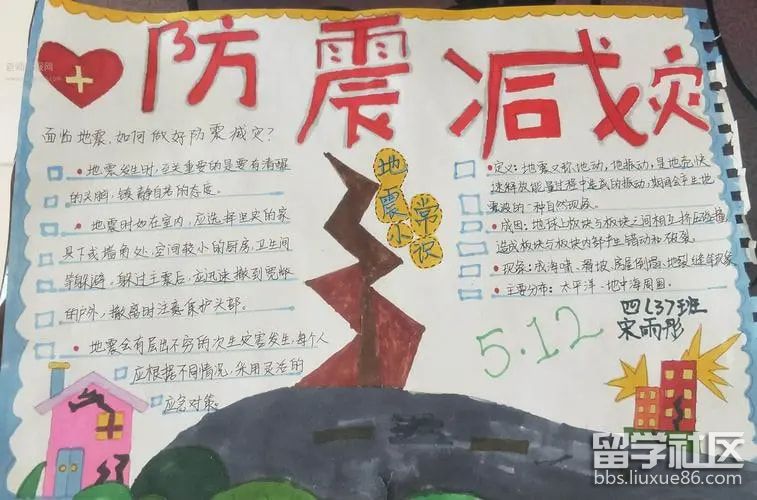 防震减灾
面临地震，如何做好防震减灾？
地震发生时，至关重要的是要有清醒
的头脑，镇静自若的态度。
地震时如在室内，应选择坚实的家
具下或墙角处，空间较小的厨房，卫生间
等躲避，躲过主震后，应迅速撤到宽敞
的户外，撤离时注意保护头部。
地震会有层出不穷的次生灾害发生，每个人
应根据不同情况，采用灵活的
应急对策。
地震小常识
定义：地震又称地动，地振动，是地壳快
速释放能量过程中造成的振动，期间会产生地
震波的一种自然现象。
成因：地球上板块与板块之间相互挤压碰撞
造成板块与板块内部产生错动和破裂。
现象：成海啸、滑坡、房屋倒塌、地裂缝等现象
主要分布：太平洋、地中海周围。
5.12
四(3)班
宋雨彤
留学社区
bbs.liuxue86.com